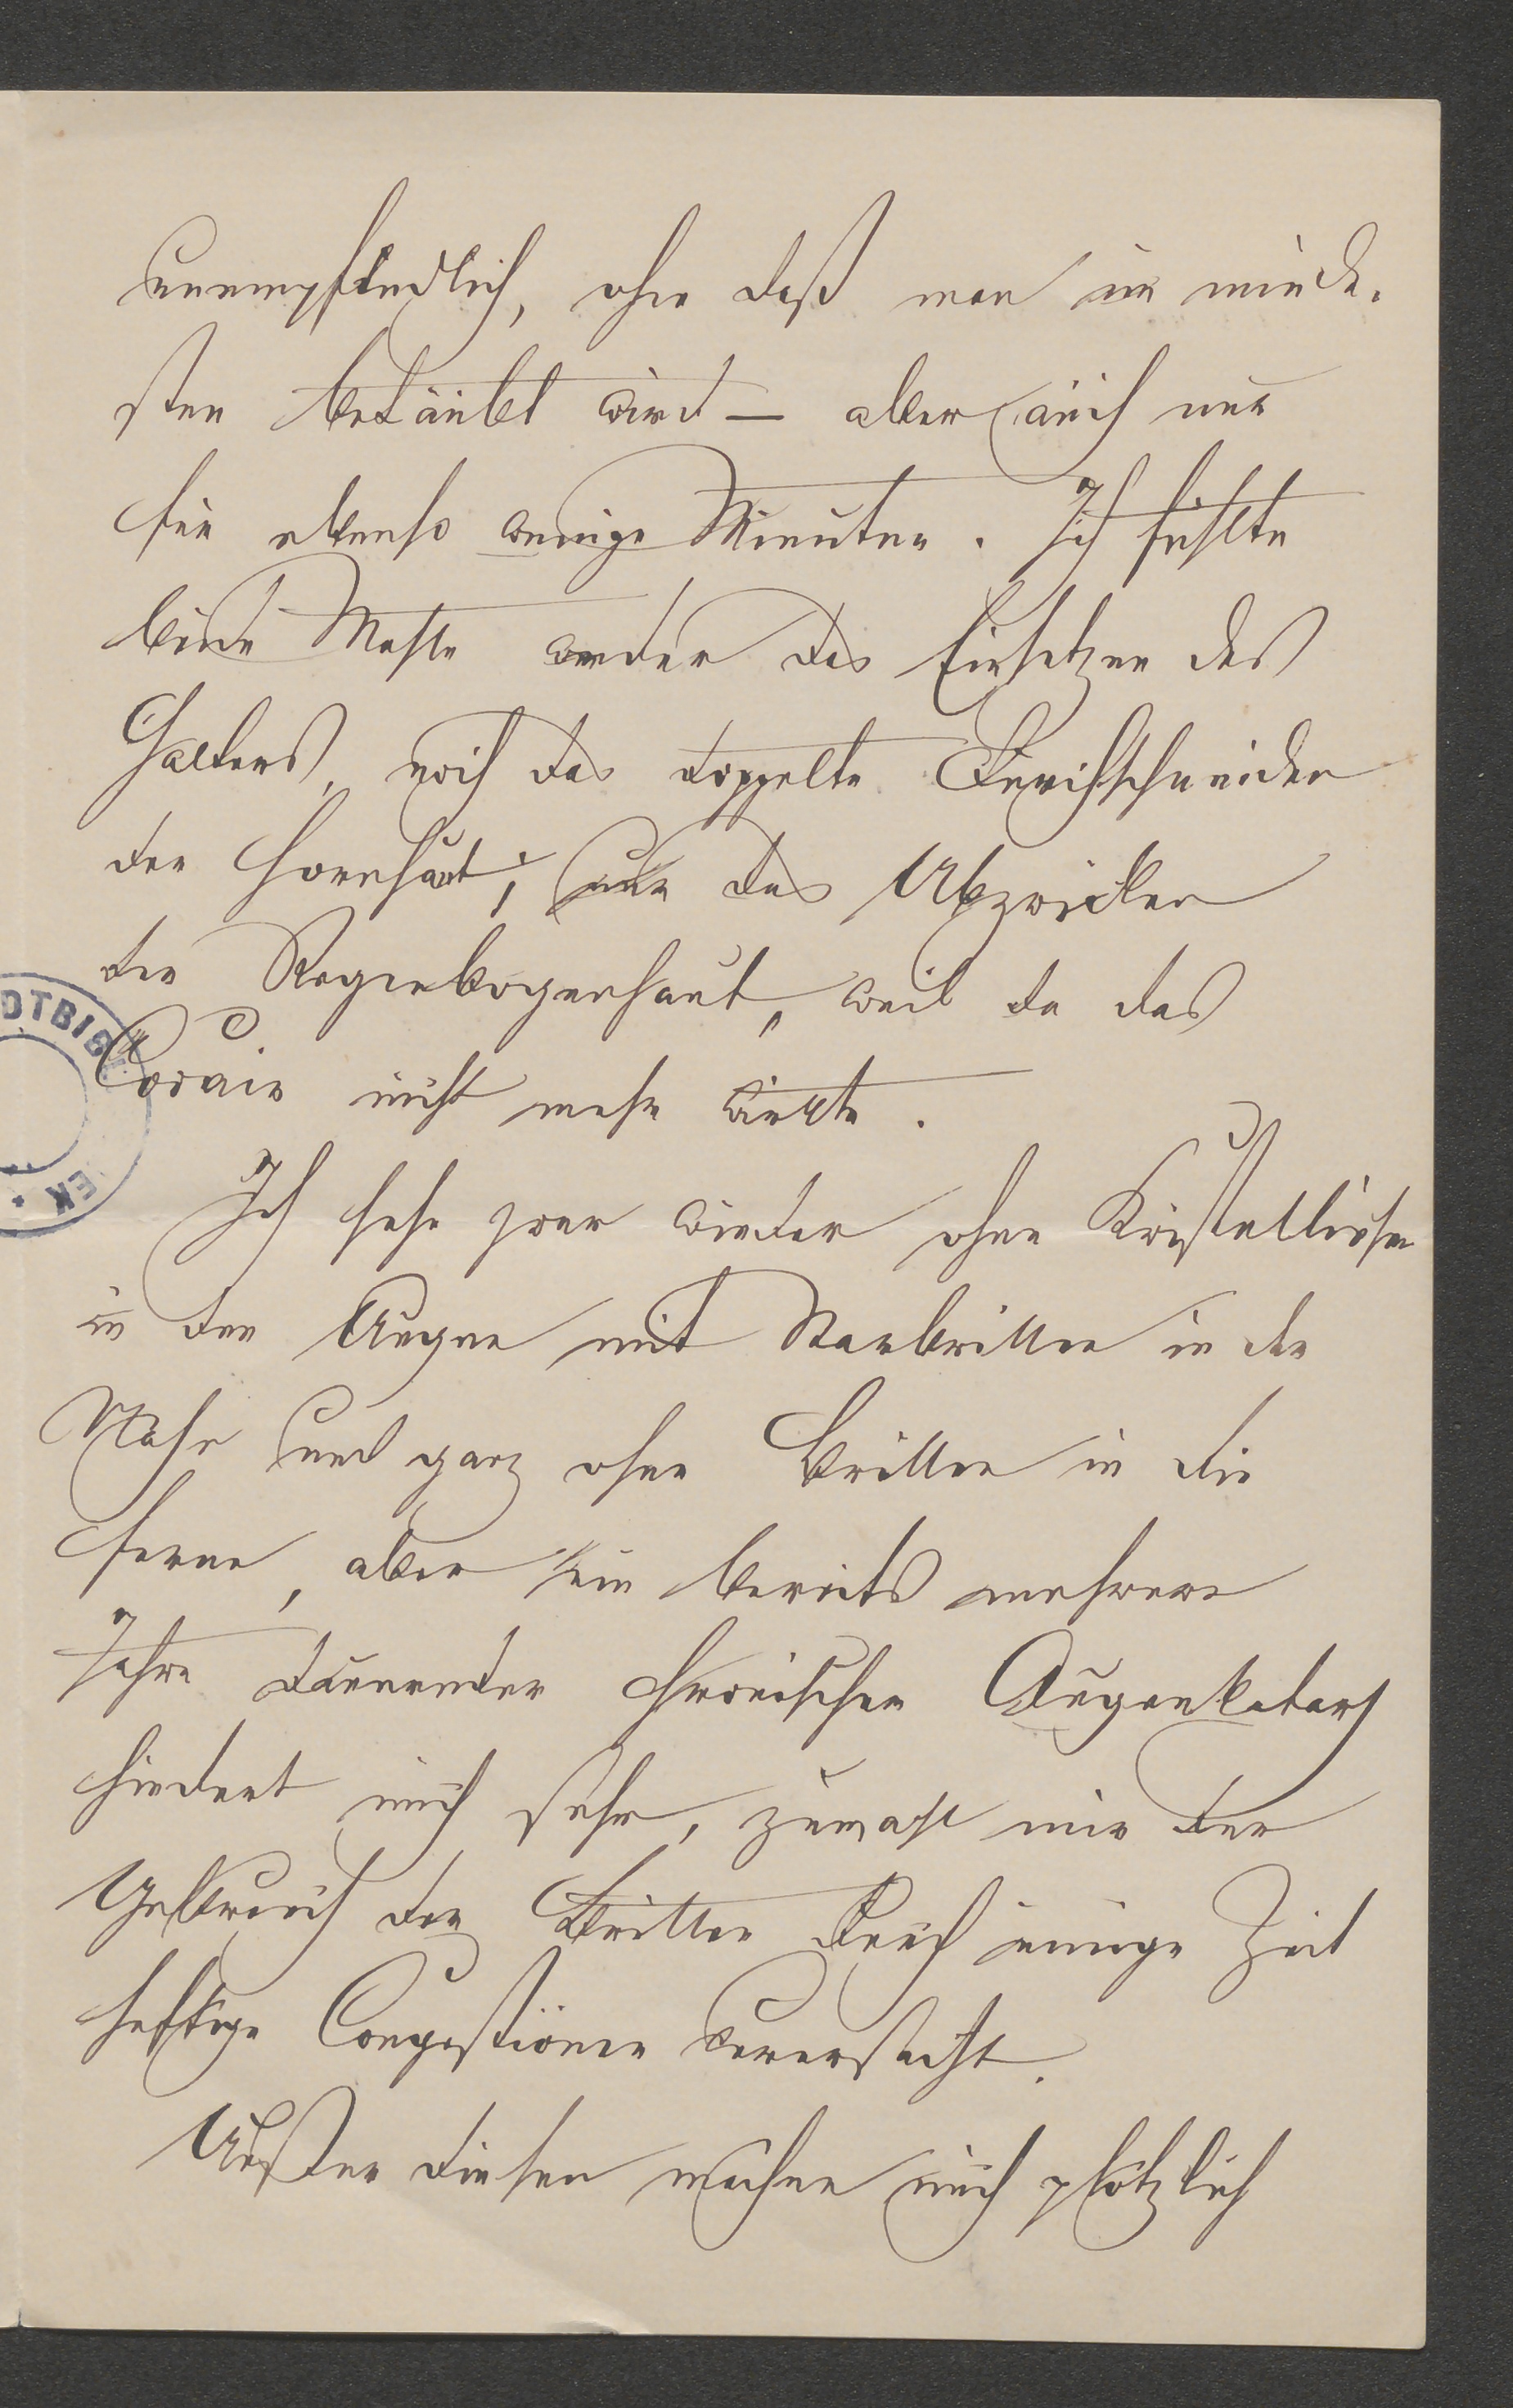 unempfindlich, ohne daß man im minde-
sten betäubt wird — aber auch nur
für ebenso wenige Minuten. Ich fühlte
beide Male weder das Einsetzen des
Halters, noch das doppelte Durchschneiden
der Hornhaut; nur das Abzwicken
der Regenbogenhaut, weil da das
Cocain nicht mehr wirkte.
Ich sehe zwar wieder ohne Kristallinsen
in den Augen mit Starbrillen in der
Nähe und ganz ohne Brillen in die
Ferne, aber ein bereits mehrere
Jahre dauernder chronischer Augenkatarh
hindert mich sehr, zumahl mir der
Gebrauch der Brillen durch einige Zeit
heftige Congestionen verursacht.
Außer diesen machen mich plötzlich
DTBIBL
EK